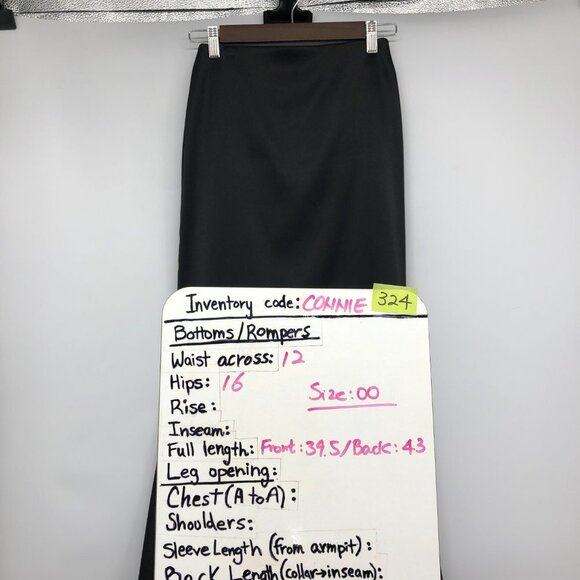 Inventory code: CONNIE 324
Bottoms/Rompers
Waist across: 12
Hips: 16
Size: 00
Rise:
Inseam:
Full length: Front: 39.5/Back: 43
Leg opening:
Chest (A to A):
Shoulders:
Sleeve Length (from armpit):
Back Length (collar→inseam):